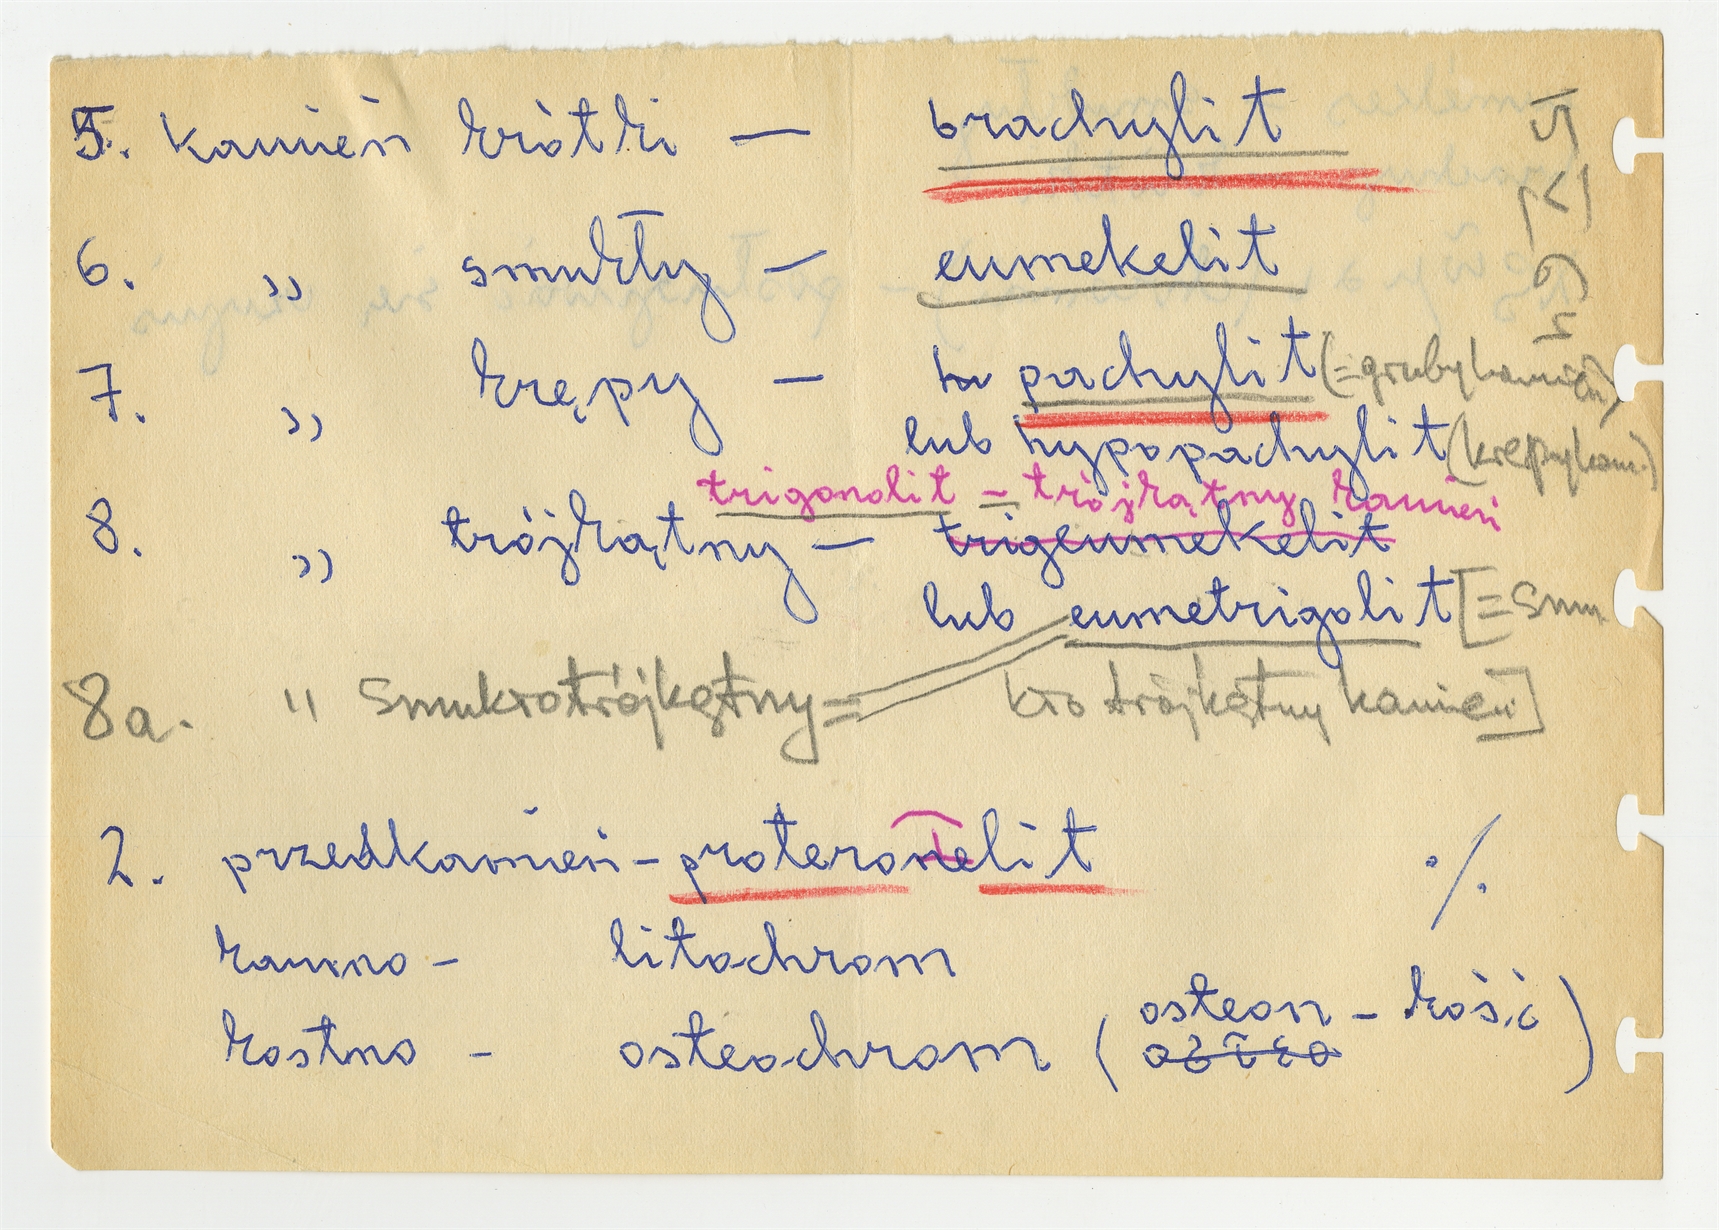 5. Kamień krótki — brachylit
6. " smukły — eumekelit
7. " krępy — pachylit (=gruby kamień)
lub hypopachylit (krępy kam.)
trigonolit = trójkątny kamień
8. " trójkątny — trigeumekelit
lub eumetrigolit [=smu
8a. " smukrotrójkątny = kro trójkątny kamień]
2. przedkamień - proteronelit ·/.
kamno - litochrom
kostno - osteochrom (osteon - kość)